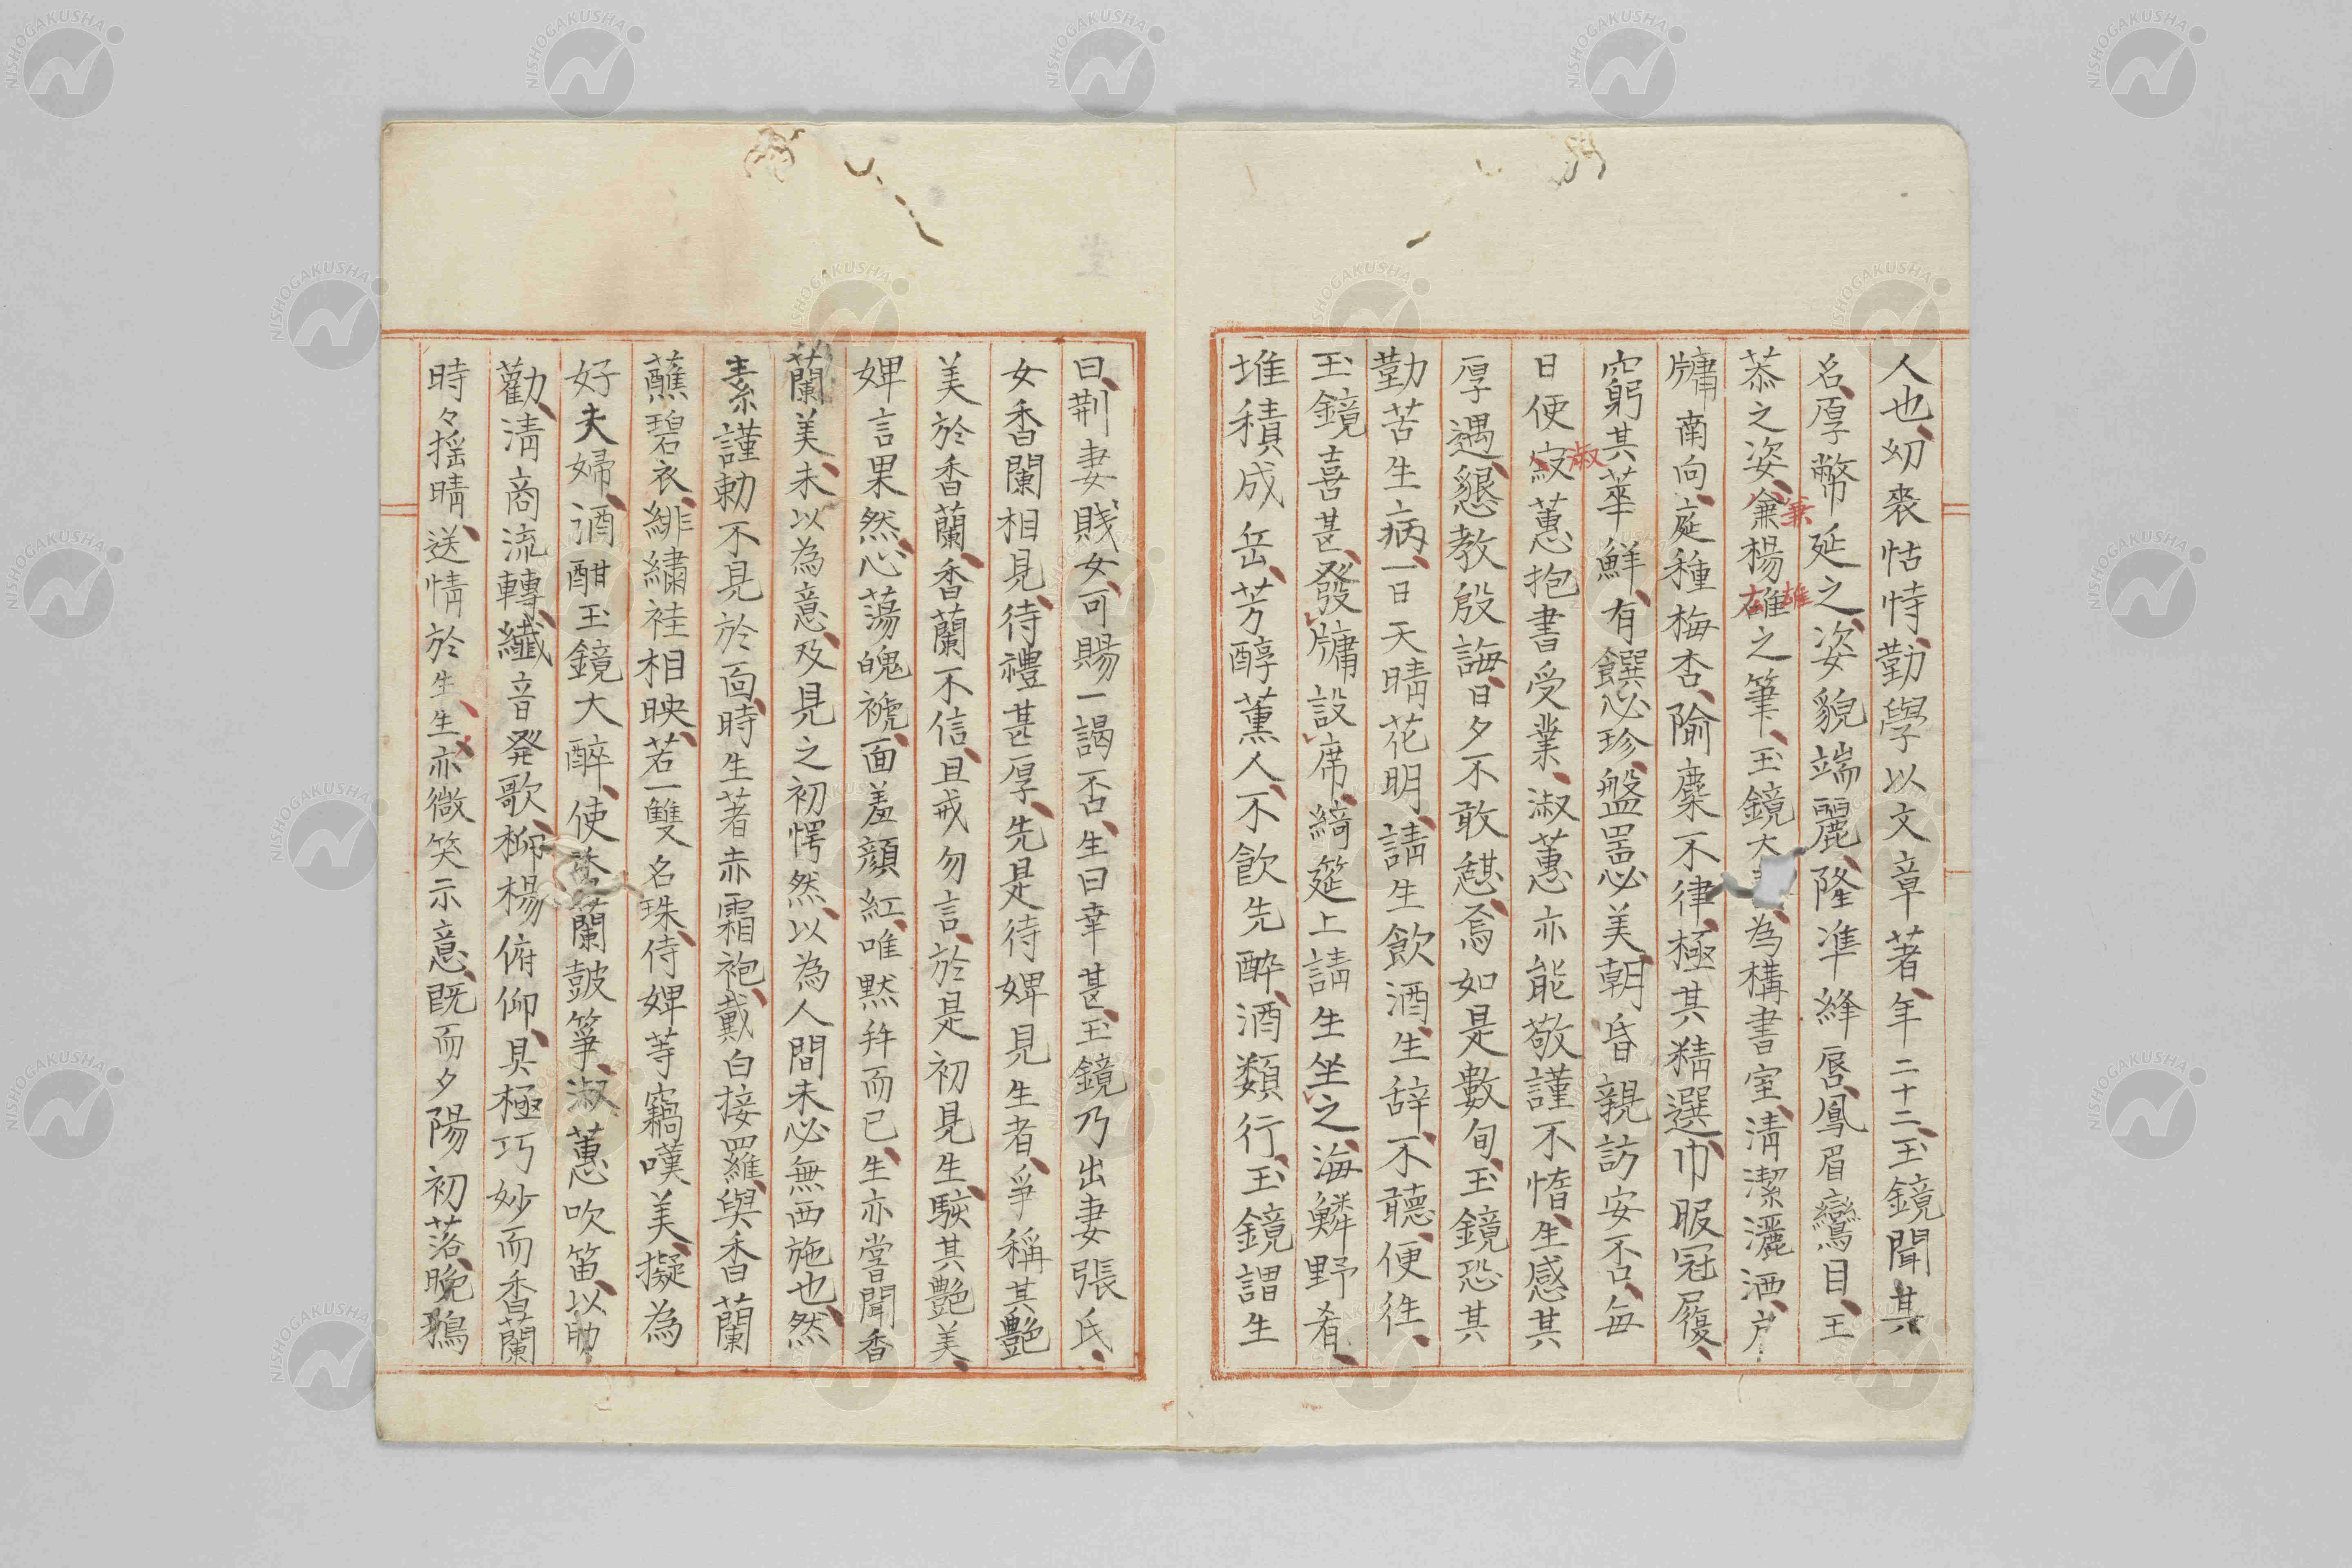 人也、幼喪怙恃、勤學以文章著、年二十二、玉鏡聞其
名、厚幣延之、姿貌端麗、隆準絳唇、鳳眉鸞目、王
恭之姿、兼楊雄之筆、玉鏡大、為構書室、清潔灑洒、戶
牖南向、庭種梅杏、隃麋不律、極其精選、巾服冠履、
窮其華鮮、有饌必珍、盤罟必美、朝昏親訪安否、每
日便淑蕙抱書受業、淑蕙亦能敬謹不惰、生感其
厚遇、懇教殷誨、日夕不敢憩焉、如是數旬、玉鏡恐其
勤苦生病、一日天晴花明、請生飲酒、生辞、不聽、便徃、
玉鏡喜甚、發牖設席、綺筵上請生坐之、海鱗野肴、
堆積成岳、芳醇薰人、不飲先醉、酒類行、玉鏡謂生
曰、荊妻賤女、可賜一謁否、生曰幸甚、玉鏡乃出妻張氏、
女香蘭相見、待禮甚厚、先是待婢見生者、爭稱其艷
美於香蘭、香蘭不信、且戒勿言、於是初見生、駭其艷美、
婢言果然、心蕩魄褫、面羞顏紅、唯黙拜而已、生亦嘗聞香
蘭美、未以為意、及見之初愕然、以為人間未必無西施也、然
素謹勅不見於面、時生著赤霜袍、戴白接羅、與香蘭
蘸碧衣、緋繡袿相映、若一雙名珠、侍婢等竊嘆美、擬為
好夫婦、酒酣玉鏡大醉、使香蘭鼓箏、淑蕙吹笛、以助
勸、清商流轉、纖音発歌、柳楊俯仰、具極巧妙、而香蘭
時々搖晴、送情於生、生亦微笑示意、既而夕陽初落、晚鴉